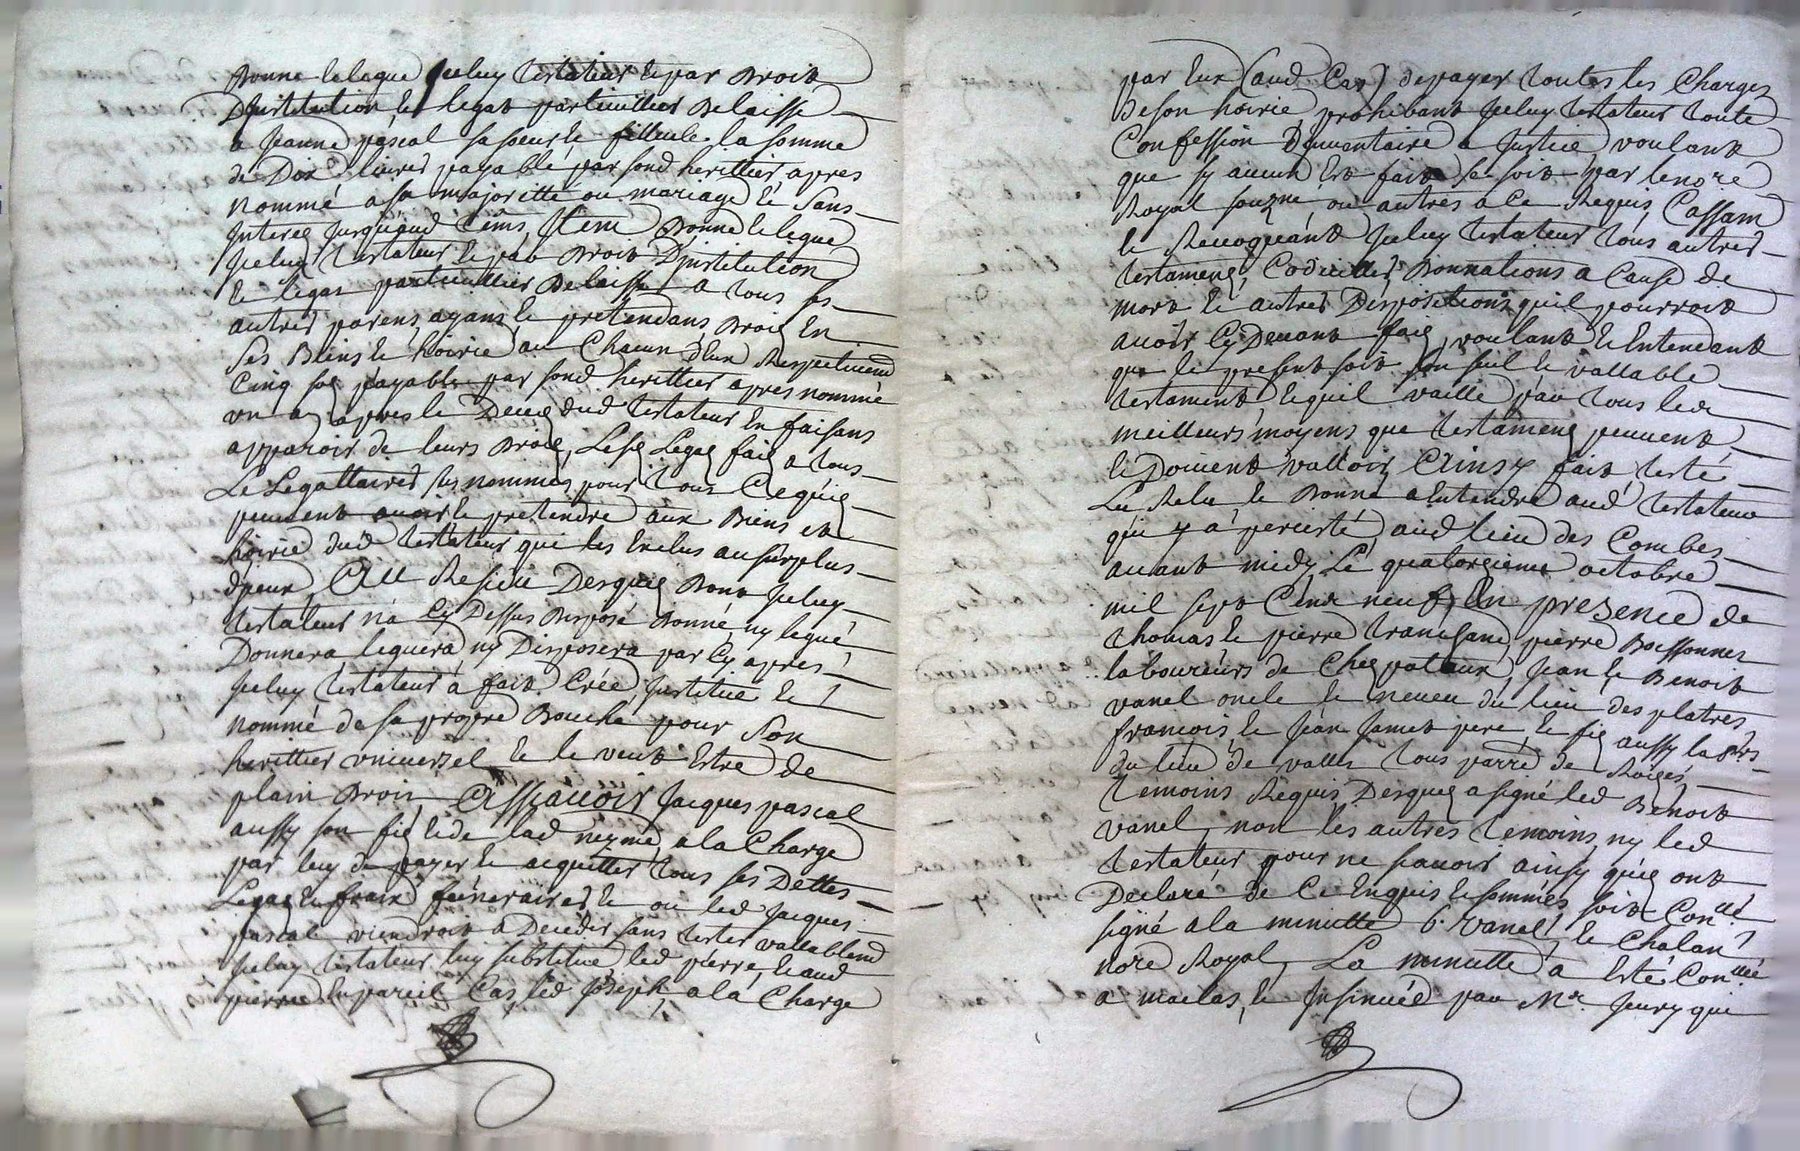 Donne & legue Iceluy testateur & par Droit
D'jnstitution & legat particullier Delaisse
a Jeanne pascal sa soeur & filleule la somme
de Dix livres payable par sond herittier apres
nommé a sa majoritté ou mariage & sans
Interest jusqu'aud tems, Item Donne & legue
Iceluy testateur & par Droit D'jnstitution
& legat particullier Delaisse a tous ses
autres parens ayans & pretendans Droit En
ses Biens & hoirie au Chacun D'eux Respectivemt
Cinq sos payable par sond herittier apres nommé
un an apres le Decez dud testateur En faisans
apparoir de leurs Droits, Lesq Legats faits a tous
Les Legattaires sus nommes pour tous Ce quils
peuvent avoir & pretendre aux Biens &
hoirie dud testateur qui les Exclus au surplus
d'jceux, Au Residu Desquels Dont Iceluy
testateur n'a Cy Dessus Disposé Donné, ny legué,
Donnera leguera ny Disposera par Cy apres
Iceluy testateur a fait Créé Institué &
nommé de sa propre Bouche pour Son
herittier universel & le veut Estre de
plain Droit, Assavoir Jacques pascal
aussy son fils & de lad neyme, a la Charge
par luy de payer & acquitter tous ses Dettes
Legats & fraix funeraires & ou led Jacques
pascal viendroit a Deceder sans tester vallablemt
Iceluy testateur luy substitue led pierre, & aud
pierre En pareil Cas led Joseph, a la Charge
par Eux (aud Cas) de payer toutes les Charges
de son hoirie prohibant Iceluy testateur toute
Confession D'jnventaire a Justice voulant
que sy aucun Est fait Se soit par le nore
Royal souzné, ou autres a Ce Requis, Cassam
& Revoquant Iceluy testateur tous autres
testamens, Codicilles, Donnations a Cause de
mort & autres Dispositions qu'il pourroit
avoir Cy Devant fait, voulant & Entendant
que le present soit son seul & vallable
testament lequel vaille par tous les
meilleurs moyens que testamens peuvent
& Doivent valloir, Ainsy fait, testé
Lu Relu, & Donné a Entendre aud testateur
qui y a percisté aud lieu des Combes
avant midy, Le quatorzieme octobre
mil sept Cent neuf, En presence de
thomas & pierre tranchand, pierre Boissonnet
laboureurs de Chez pataux, Jean & Benoit
vanel oncle & neveu du lieu des platres
francois, & Jean Jamet pere, & fils aussy labrs
du lieu de valla tous parre de Roizés
temoins Requis Desquels a signé led Benoit
vanel, non les autres temoins, ny led
testateur pour ne scavoir ainsy quils ont
Declaré de Ce Enquis & sommés soit Conllé
signé a la minutte b. Vanel, & Chalan
nore Royal, La minutte a Esté Conllée
a maclas, & Insinuée par Mr. Jeury qui